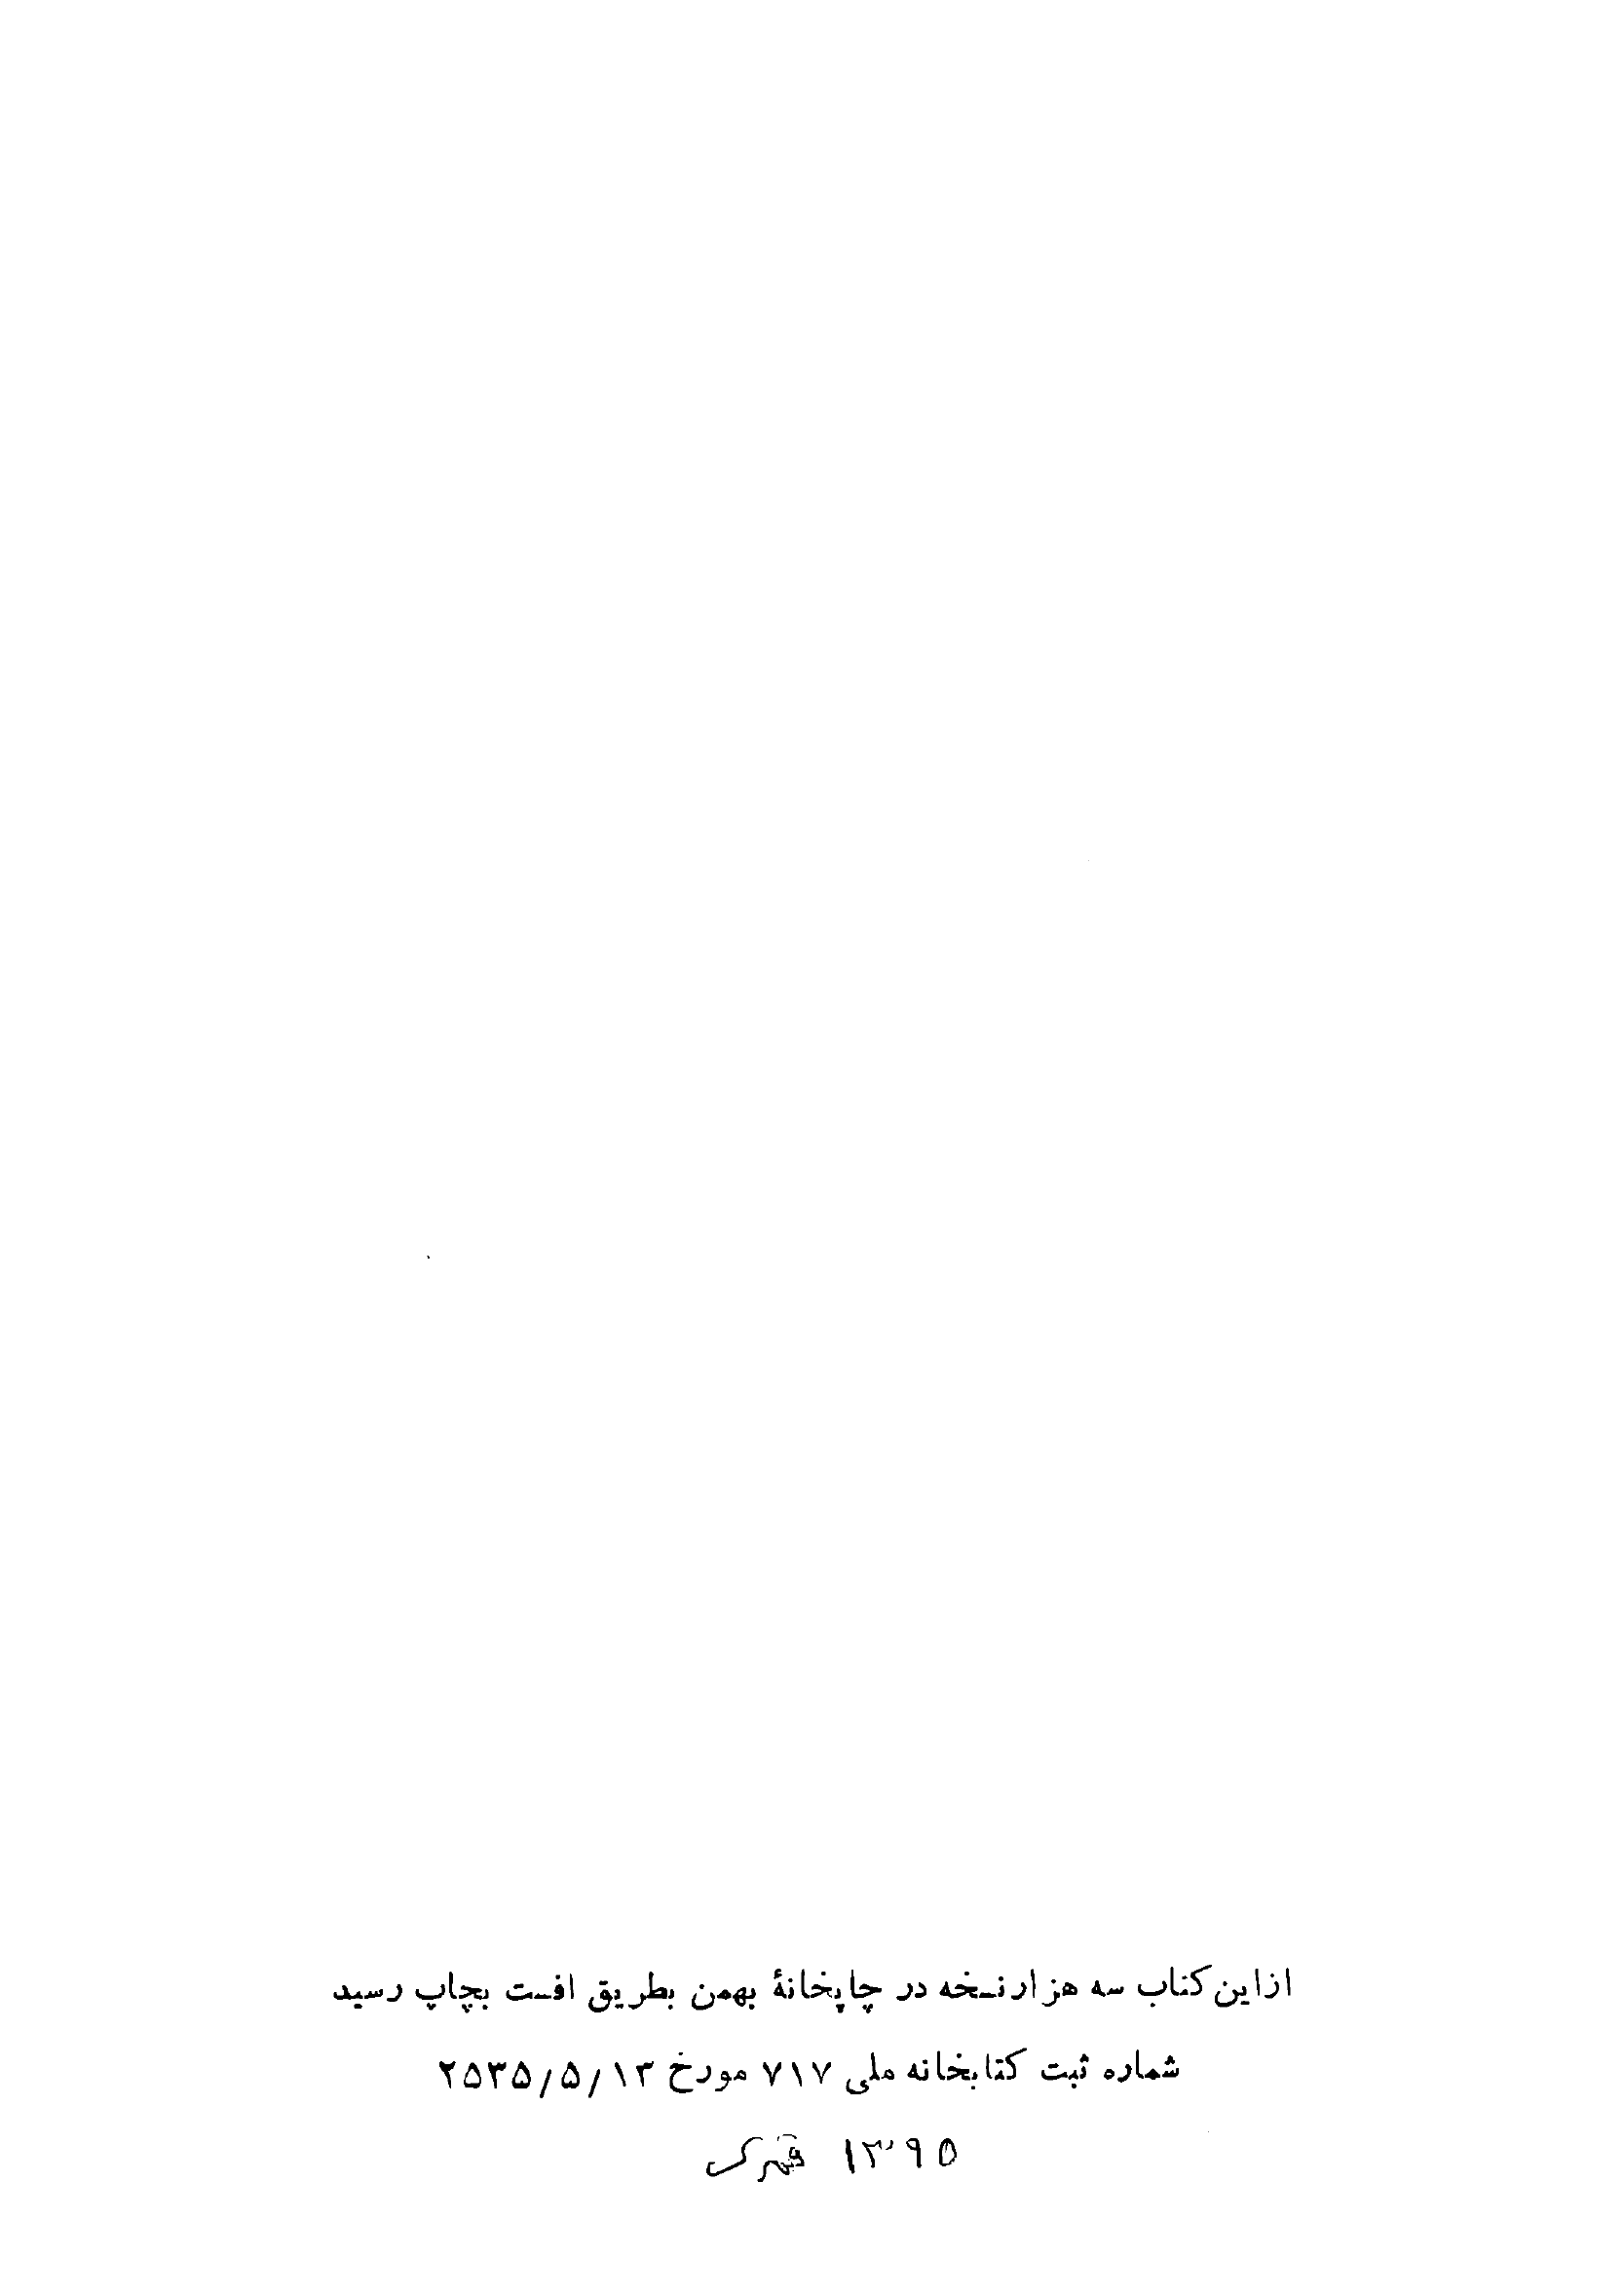 ازاین کتاب سه هزار نسخه در چاپخانهٔ بهمن بطریق افست بچاپ رسید
شماره ثبت کتابخانه ملی ۷۱۷ مورخ ۲۵۳۵/۵/۱۳
۱۳۹۵